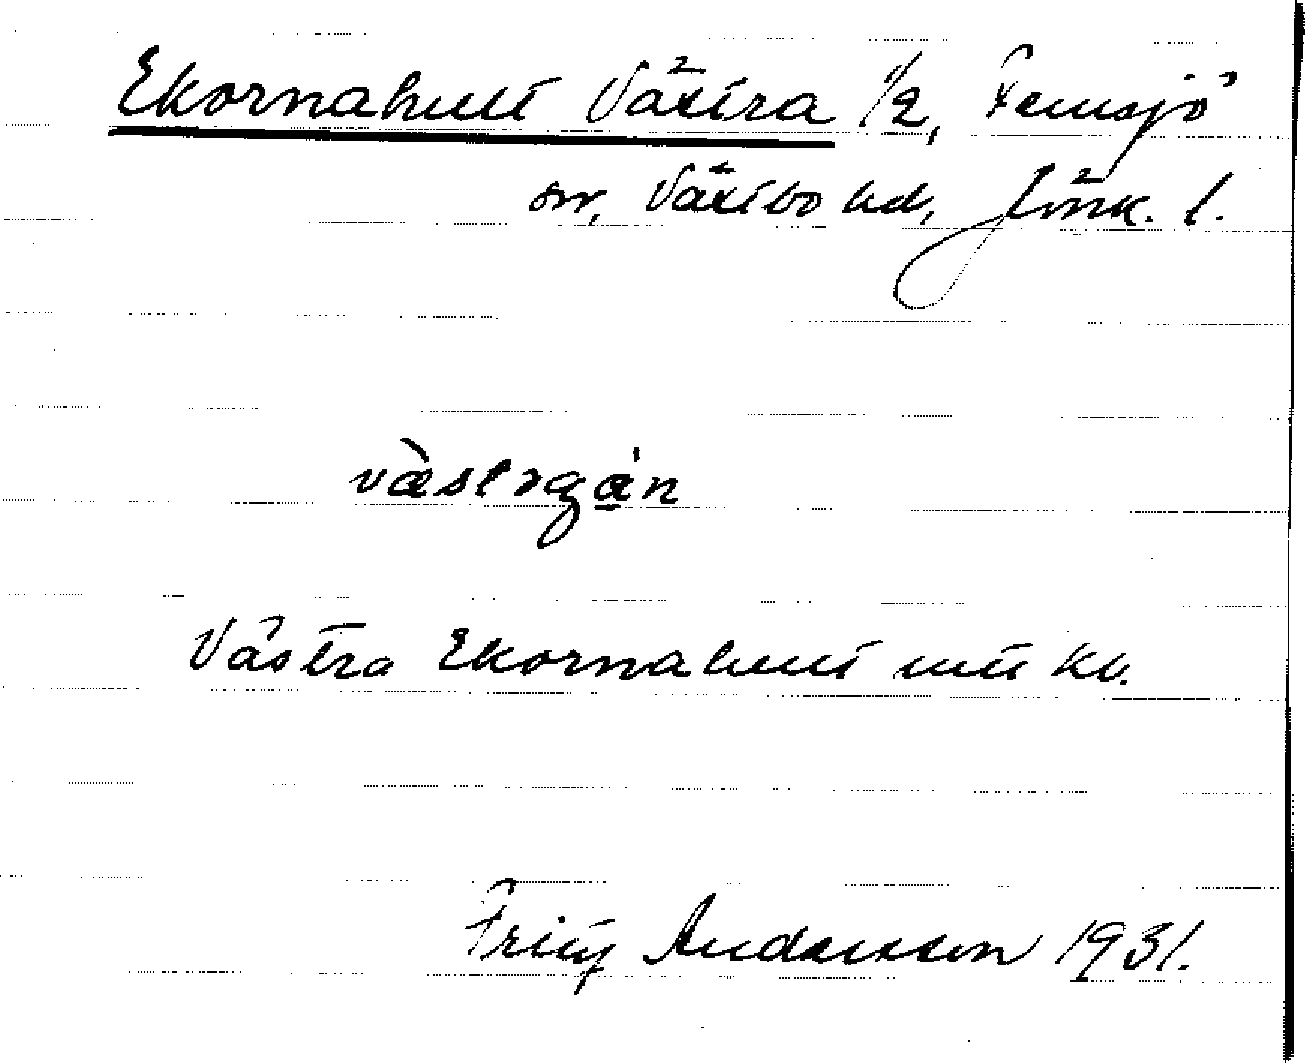 Ekornahult Västra 1/2, Femsjö
sn, Västbo hd, Jönk. l.
vàstrgán
Västra Ekornahult utt kb.
Fritz Andersson 1931.